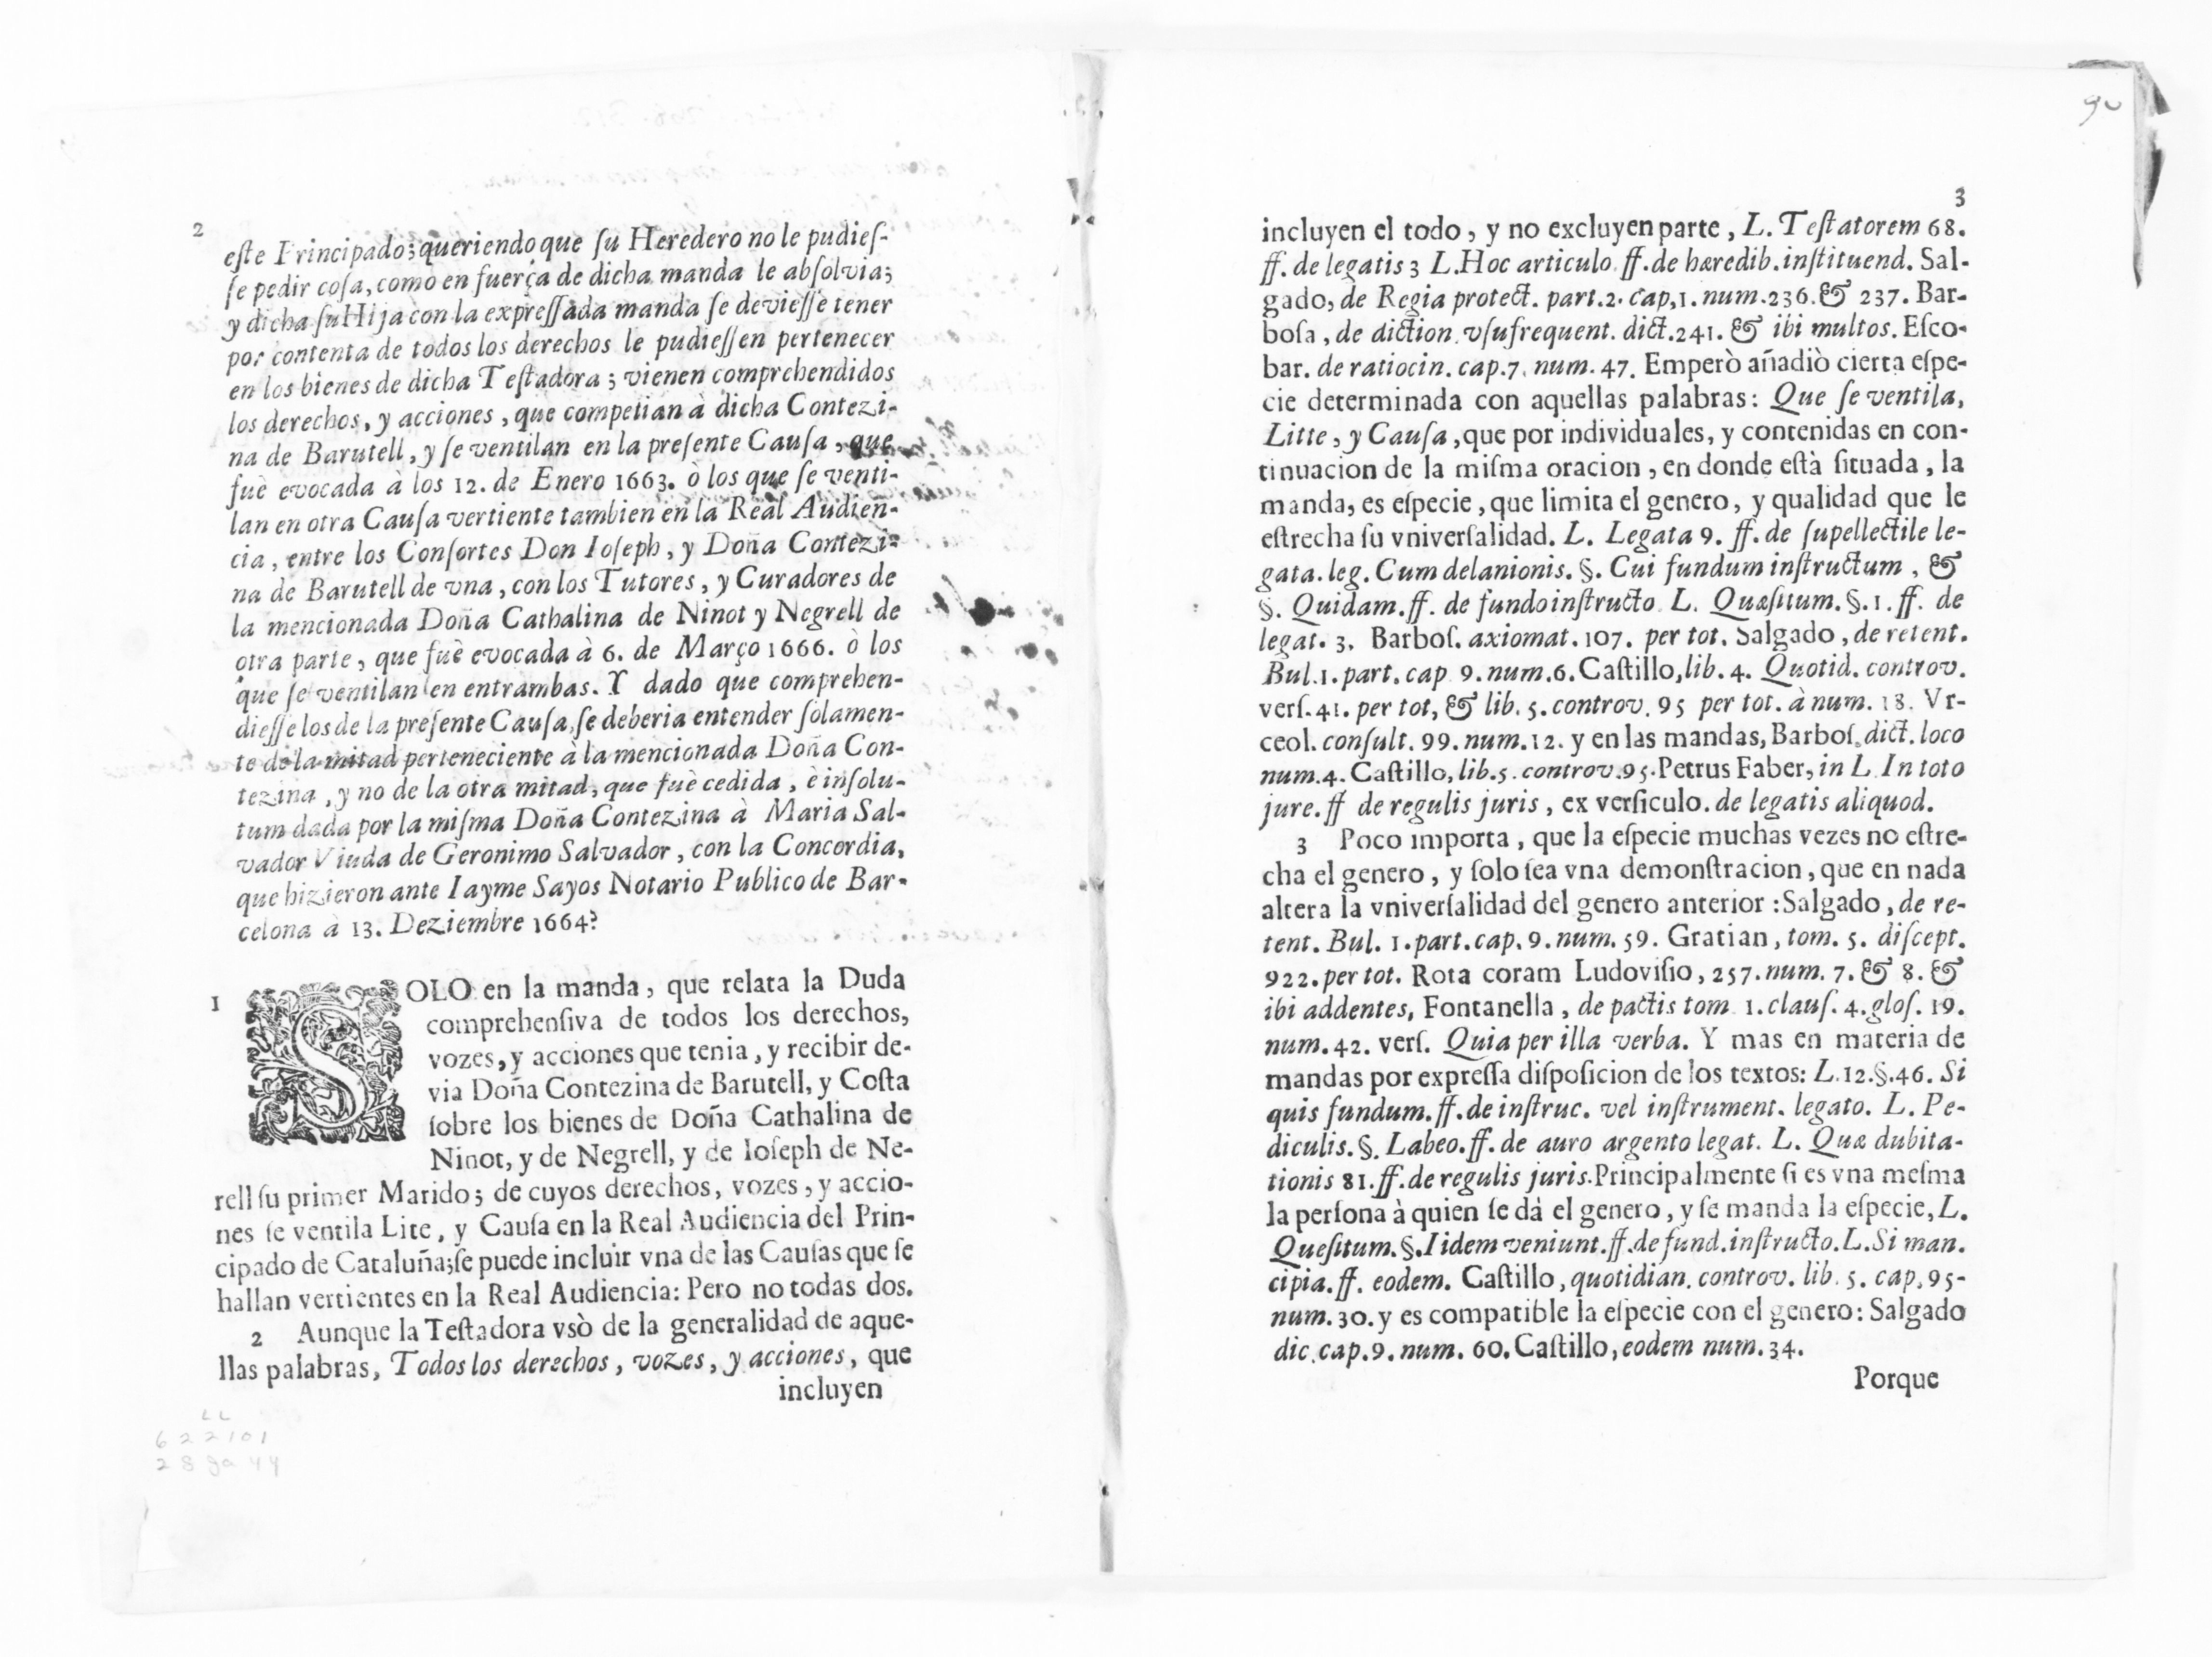 2
este Principado; queriendo que su Heredero no le pudies-
se pedir cosa, como en fuerça de dicha manda le absolvia;
y dicha su Hija con la expressada manda se deviesse tener
por contenta de todos los derechos le pudiessen pertenecer
en los bienes de dicha Testadora; vienen comprehendidos
los derechos, y acciones, que competian à dicha Contezi-
na de Barutell, y se ventilan en la presente Causa, que
fuè evocada à los 12. de Enero 1663. ò los que se venti-
lan en otra Causa vertiente tambien en la Real Audien-
cia, entre los Consortes Don Ioseph, y Doña Contezi-
na de Barutell de vna, con los Tutores, y Curadores de
la mencionada Doña Cathalina de Ninot y Negrell de
otra parte, que fuè evocada à 6. de Março 1666. ò los
que se ventilan en entrambas. Y dado que comprehen-
diesse los de la presente Causa, se deberia entender solamen-
te de la mitad perteneciente à la mencionada Doña Con-
tezina, y no de la otra mitad, que fuè cedida, è insolu-
tum dada por la misma Doña Contezina à Maria Sal-
vador Viuda de Geronimo Salvador, con la Concordia,
que hizieron ante Iayme Sayos Notario Publico de Bar-
celona à 13. Deziembre 1664?
1 SOLO en la manda, que relata la Duda
comprehensiva de todos los derechos,
vozes, y acciones que tenia, y recibir de-
via Doña Contezina de Barutell, y Costa
sobre los bienes de Doña Cathalina de
Ninot, y de Negrell, y de Ioseph de Ne-
rell su primer Marido; de cuyos derechos, vozes, y accio-
nes se ventila Lite, y Causa en la Real Audiencia del Prin-
cipado de Cataluña; se puede incluir vna de las Causas que se
hallan vertientes en la Real Audiencia: Pero no todas dos.
2 Aunque la Testadora vsò de la generalidad de aque-
llas palabras, Todos los derechos, vozes, y acciones, que
incluyen
LL
622101
28 ga 44
90
3
incluyen el todo, y no excluyen parte, L. Testatorem 68.
ff. de legatis 3 L. Hoc articulo ff. de hæredib. instituend. Sal-
gado, de Regia protect. part. 2. cap, 1. num. 236. & 237. Bar-
bosa, de diction. vsufrequent. dict. 241. & ibi multos. Esco-
bar. de ratiocin. cap. 7. num. 47. Emperò añadiò cierta espe-
cie determinada con aquellas palabras: Que se ventila,
Litte, y Causa, que por individuales, y contenidas en con-
tinuacion de la misma oracion, en donde està situada, la
manda, es especie, que limita el genero, y qualidad que le
estrecha su vniversalidad. L. Legata 9. ff. de supellectile le-
gata. leg. Cum delanionis. §. Cui fundum instructum, &
§. Quidam. ff. de fundo instructo L. Quæsitum. §. 1. ff. de
legat. 3. Barbos. axiomat. 107. per tot. Salgado, de retent.
Bul. 1. part. cap 9. num. 6. Castillo, lib. 4. Quotid. controv.
vers. 41. per tot, & lib. 5. controv. 95 per tot. à num. 18. Vr-
ceol. consult. 99. num. 12. y en las mandas, Barbos. dict. loco
num. 4. Castillo, lib. 5. controv. 95. Petrus Faber, in L In toto
jure. ff de regulis juris, ex versiculo. de legatis aliquod.
3 Poco importa, que la especie muchas vezes no estre-
cha el genero, y solo sea vna demonstracion, que en nada
altera la vniversalidad del genero anterior: Salgado, de re-
tent. Bul. 1. part. cap. 9. num. 59. Gratian, tom. 5. discept.
922. per tot. Rota coram Ludovisio, 257. num. 7. & 8. &
ibi addentes, Fontanella, de pactis tom 1. claus. 4. glos. 19.
num. 42. vers. Quia per illa verba. Y mas en materia de
mandas por expressa disposicion de los textos: L. 12. §. 46. Si
quis fundum. ff. de instruc. vel instrument. legato. L. Pe-
diculis. §. Labeo. ff. de auro argento legat. L. Quæ dubita-
tionis 81. ff. de regulis juris. Principalmente si es vna mesma
la persona à quien se dà el genero, y se manda la especie, L.
Quesitum. §. Iidem veniunt. ff. de fund. instructo. L. Si man.
cipia. ff. eodem. Castillo, quotidian. controv. lib. 5. cap. 95-
num. 30. y es compatible la especie con el genero: Salgado
dic. cap. 9. num. 60. Castillo, eodem num. 34.
Porque